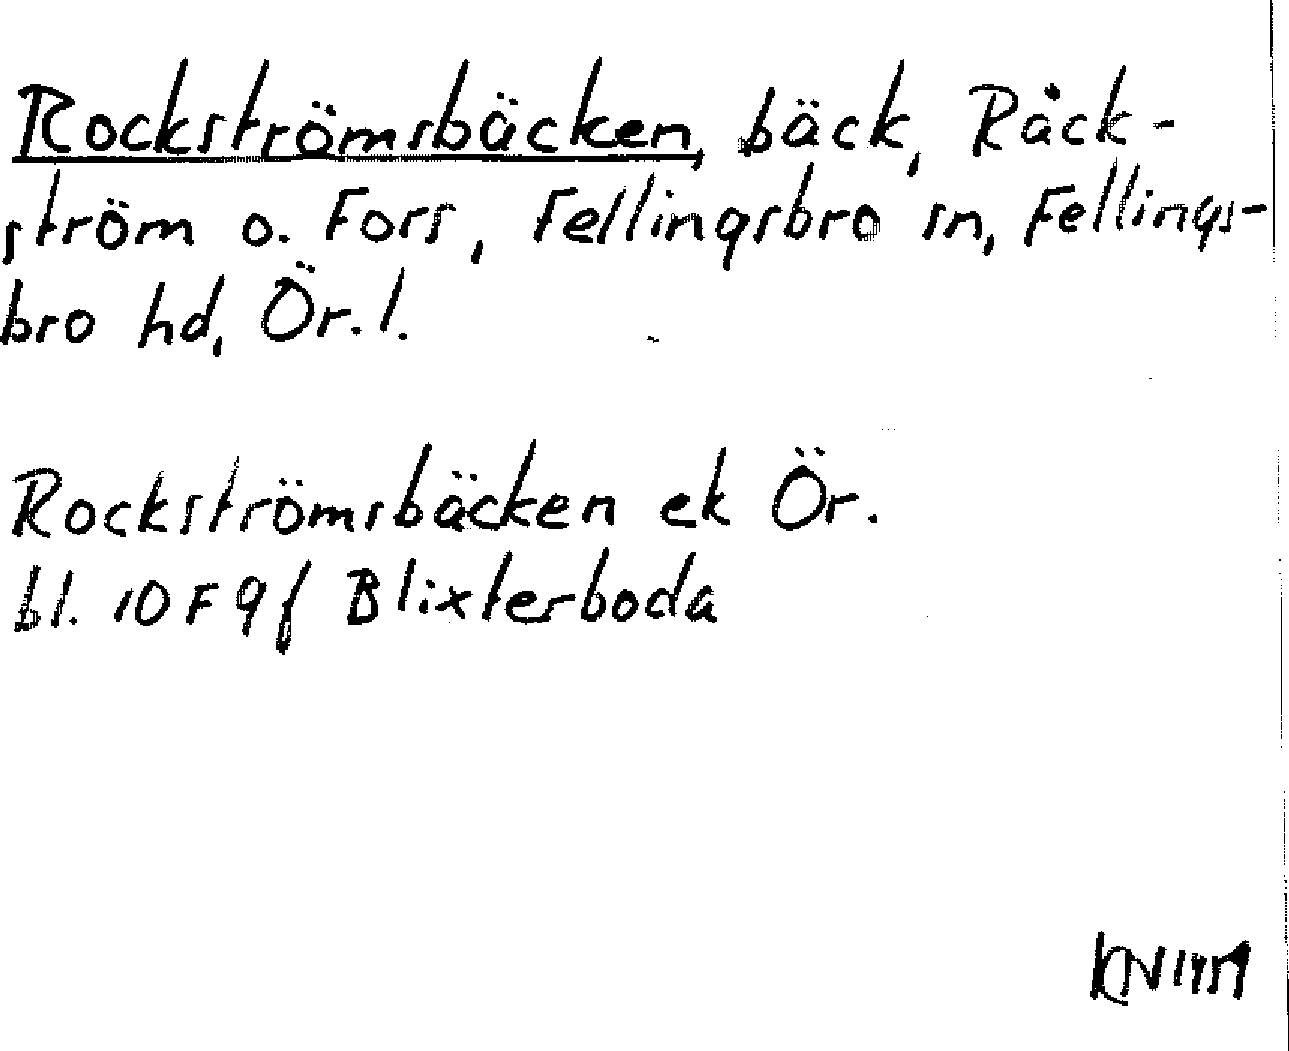 Rockströmsbäcken, bäck, Råck-
ström o. Fors, Fellingsbro sn, Fellings-
bro hd, Ör. l.
Rockströmsbäcken ek Ör.
bl. 10 F 9 f Blixterboda